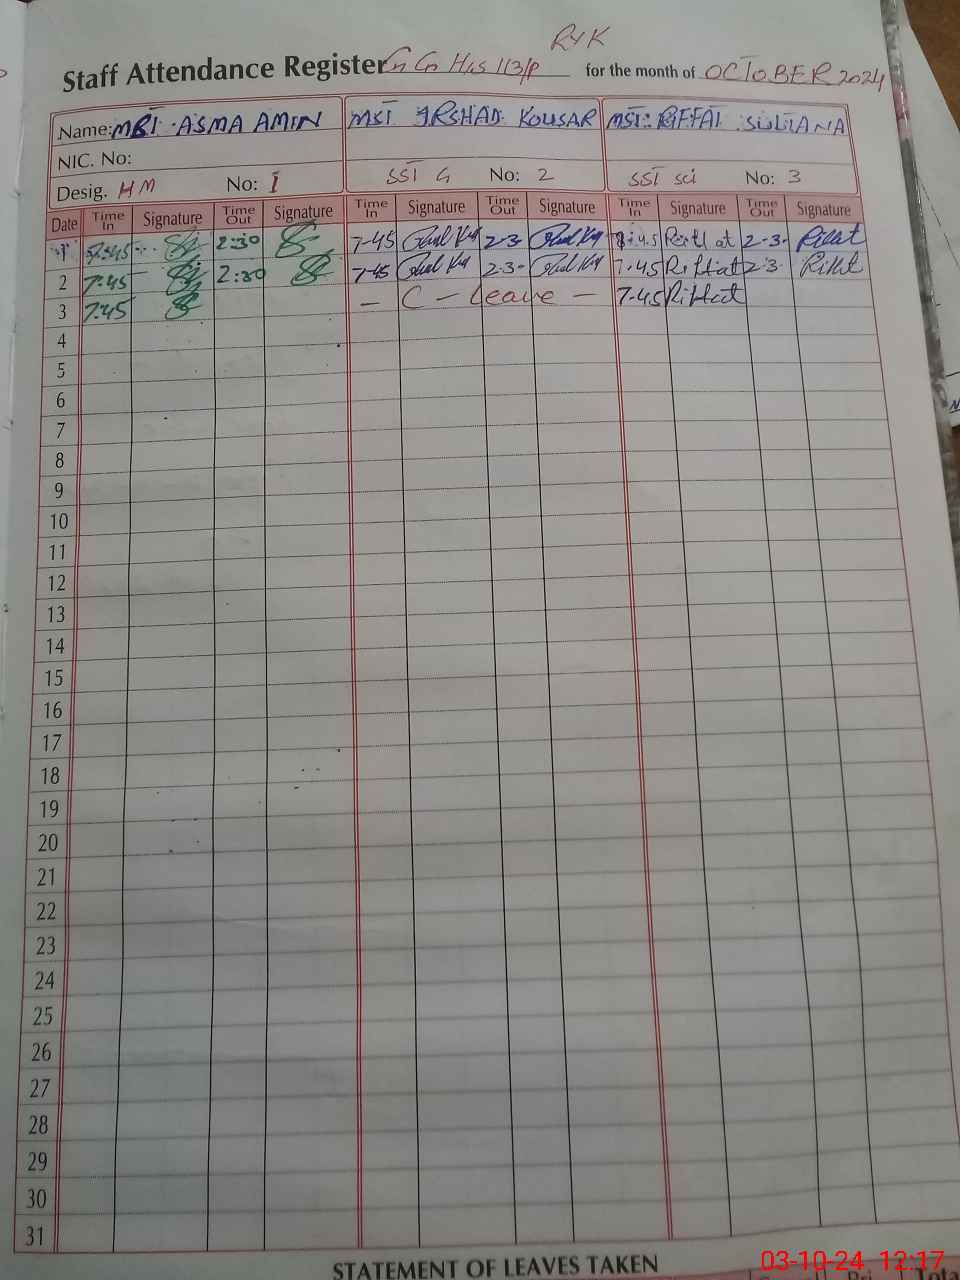 RYK
Staff Attendance Register G G H/S 113/P for the month of OCTOBER 2024
Name: MST ASMA AMIN MST IRSHAD KOUSAR MST RIFFAT SULTANA
NIC. No:
Desig. HM No: 1 SST G No: 2 SST sci No: 3
Date Time In Signature Time Out Signature Time In Signature Time Out Signature Time In Signature Time Out Signature
1 7:45 2:30 7-45 2-3- 7:45 Riffat 2-3- Riffat
2 7:45 2:30 7-45 2-3- 7-45 Riffat 2-3- Riffat
3 7:45 – C – Leave – 7-45 Riffat
4
5
6
7
8
9
10
11
12
13
14
15
16
17
18
19
20
21
22
23
24
25
26
27
28
29
30
31
STATEMENT OF LEAVES TAKEN
03-10-24 12:17